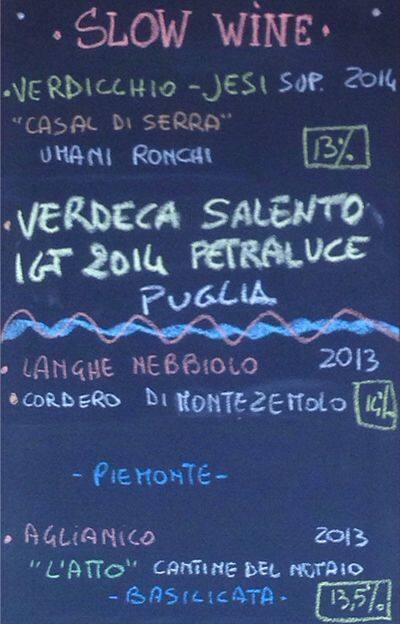 · SLOW WINE ·
· VERDICCHIO - JESI SUP. 2014
"CASAL DI SERRA"
UMANI RONCHI 13%
· VERDECA SALENTO
IGT 2014 PETRALUCE
PUGLIA
· LANGHE NEBBIOLO 2013
· CORDERO DI MONTEZEMOLO 14%
- PIEMONTE -
· AGLIANICO 2013
"L'ATTO" CANTINE DEL NOTAIO
- BASILICATA - 13,5%